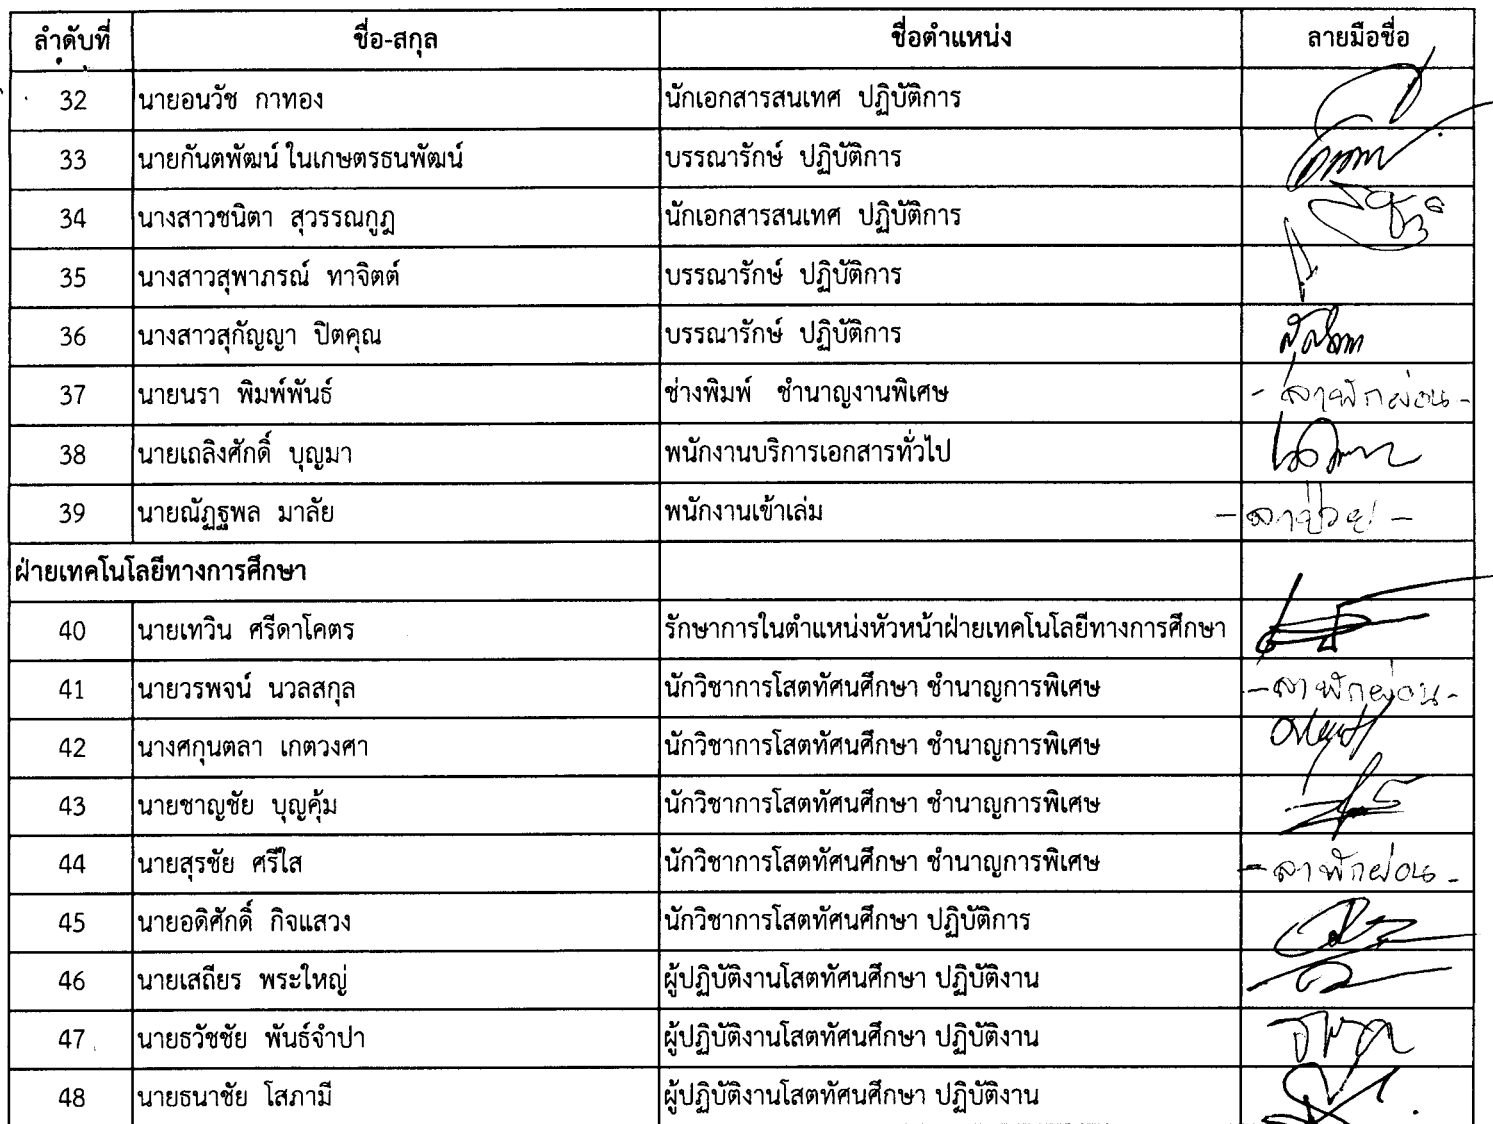 ลำดับที่ ชื่อ-สกุล ชื่อตำแหน่ง ลายมือชื่อ
32 นายอนวัช กาทอง นักเอกสารสนเทศ ปฏิบัติการ
33 นายกันตพัฒน์ ในเกษตรธนพัฒน์ บรรณารักษ์ ปฏิบัติการ
34 นางสาวชนิตา สุวรรณกูฏ นักเอกสารสนเทศ ปฏิบัติการ
35 นางสาวสุพาภรณ์ ทาจิตต์ บรรณารักษ์ ปฏิบัติการ
36 นางสาวสุกัญญา ปิตคุณ บรรณารักษ์ ปฏิบัติการ
37 นายนรา พิมพ์พันธ์ ช่างพิมพ์ ชำนาญงานพิเศษ - ลาพักผ่อน -
38 นายเถลิงศักดิ์ บุญมา พนักงานบริการเอกสารทั่วไป
39 นายณัฏฐพล มาลัย พนักงานเข้าเล่ม - ลาป่วย -
ฝ่ายเทคโนโลยีทางการศึกษา
40 นายเทวิน ศรีดาโคตร รักษาการในตำแหน่งหัวหน้าฝ่ายเทคโนโลยีทางการศึกษา
41 นายวรพจน์ นวลสกุล นักวิชาการโสตทัศนศึกษา ชำนาญการพิเศษ - ลาพักผ่อน -
42 นางศกุนตลา เกตวงศา นักวิชาการโสตทัศนศึกษา ชำนาญการพิเศษ
43 นายชาญชัย บุญคุ้ม นักวิชาการโสตทัศนศึกษา ชำนาญการพิเศษ
44 นายสุรชัย ศรีใส นักวิชาการโสตทัศนศึกษา ชำนาญการพิเศษ - ลาพักผ่อน -
45 นายอดิศักดิ์ กิจแสวง นักวิชาการโสตทัศนศึกษา ปฏิบัติการ
46 นายเสถียร พระใหญ่ ผู้ปฏิบัติงานโสตทัศนศึกษา ปฏิบัติงาน
47 นายธวัชชัย พันธ์จำปา ผู้ปฏิบัติงานโสตทัศนศึกษา ปฏิบัติงาน
48 นายธนาชัย โสภามี ผู้ปฏิบัติงานโสตทัศนศึกษา ปฏิบัติงาน